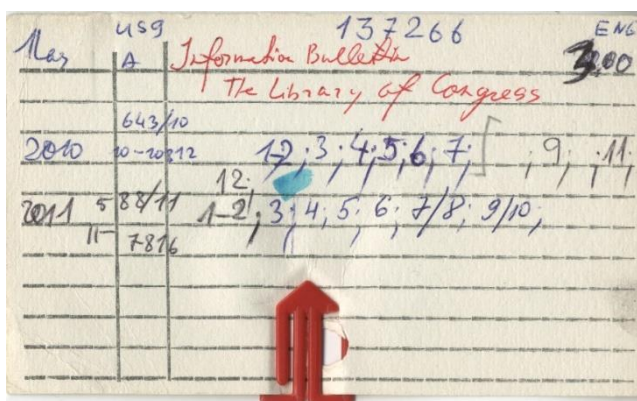 USA 137266 ENG
A Information Bulletin 3.00
The Library of Congress
643/10
2010 10-20812 1-2; 3; 4; 5; 6; 7; [ ; 9; ; 11;
12;
2011 5 88/11 1-2; 3; 4; 5; 6; 7/8; 9/10;
11- 7816